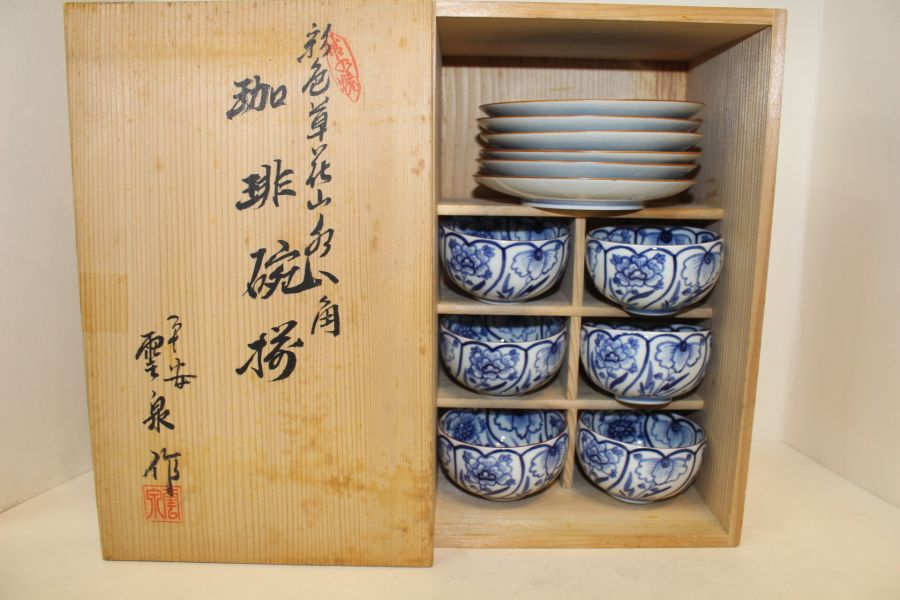 清水焼
彩色草花山水八角
珈琲碗揃
平安
雲泉作
雲泉